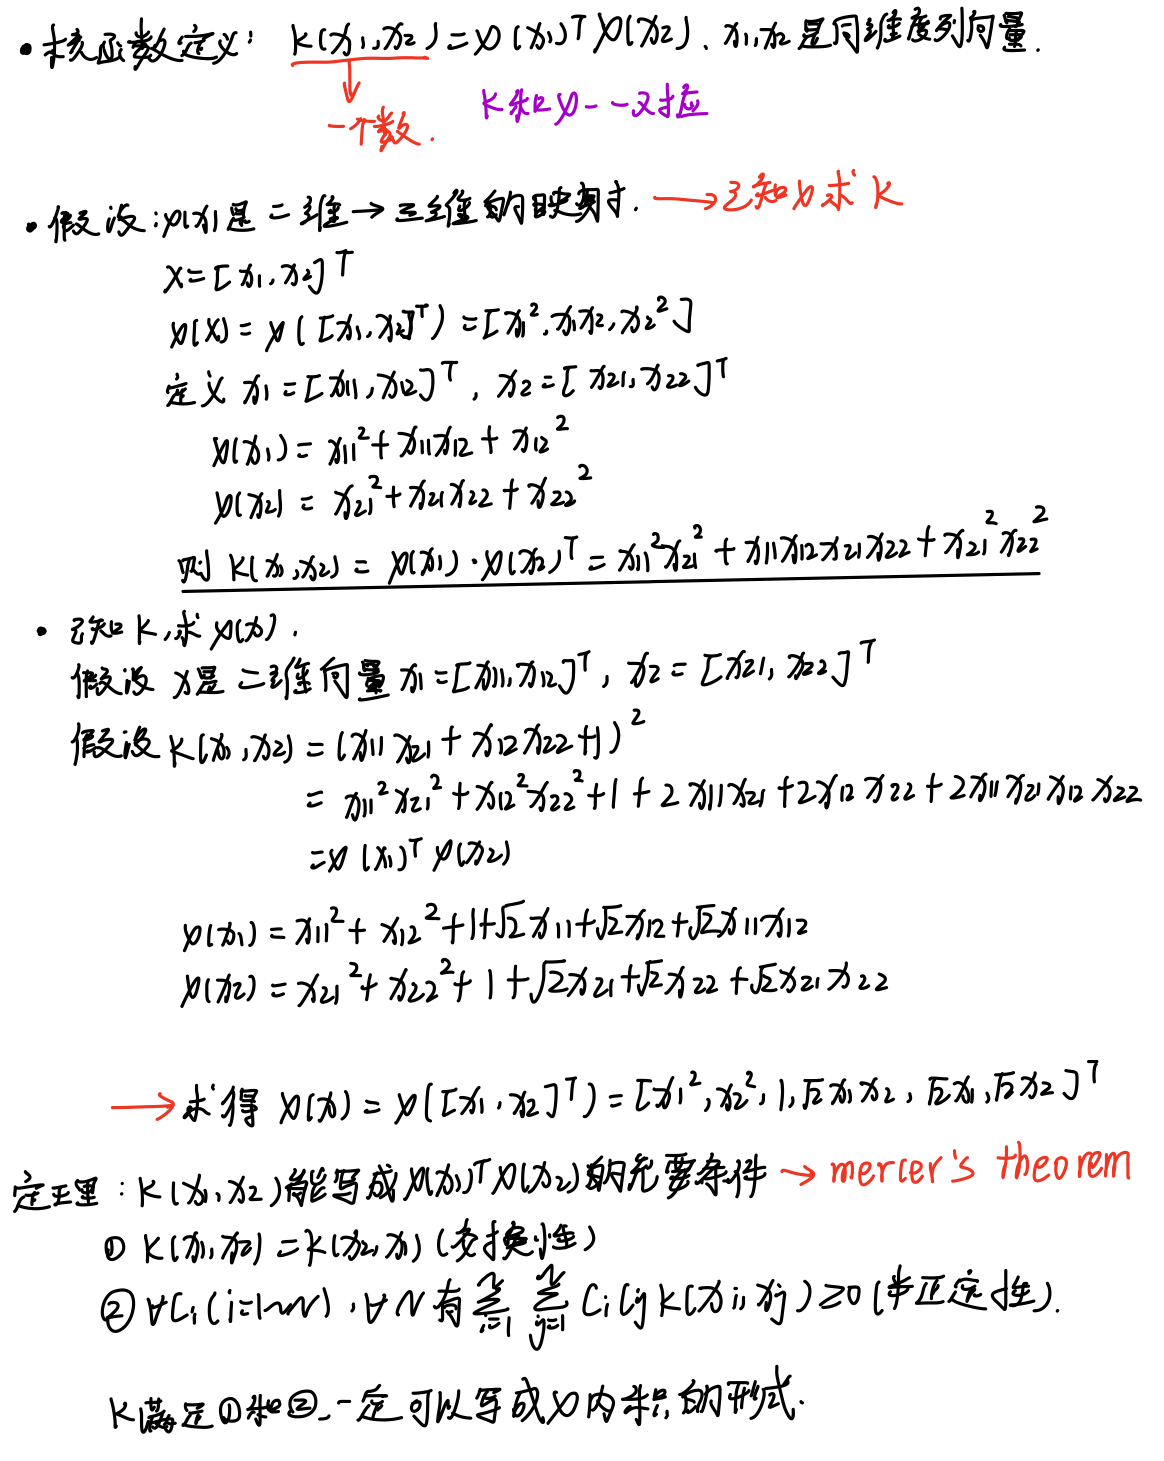 • 核函数定义: K(x₁,x₂)=φ(x₁)ᵀφ(x₂). x₁,x₂是同维度列向量.
一个数.
K和φ一一对应
• 假设:φ(x)是二维→三维的映射. →已知φ求K
X=[x₁,x₂]ᵀ
φ(X)=φ([x₁,x₂]ᵀ)=[x₁²,x₁x₂,x₂²]
定义 x₁=[x₁₁,x₁₂]ᵀ, x₂=[x₂₁,x₂₂]ᵀ
φ(x₁)=x₁₁²+x₁₁x₁₂+x₁₂²
φ(x₂)=x₂₁²+x₂₁x₂₂+x₂₂²
则 K(x₁,x₂)=φ(x₁)·φ(x₂)ᵀ=x₁₁²x₂₁²+x₁₁x₁₂x₂₁x₂₂+x₂₁²x₂₂²
• 已知K,求φ(x).
假设 x是二维向量 x₁=[x₁₁,x₁₂]ᵀ, x₂=[x₂₁,x₂₂]ᵀ
假设K(x₁,x₂)=(x₁₁x₂₁+x₁₂x₂₂+1)²
=x₁₁²x₂₁²+x₁₂²x₂₂²+1+2x₁₁x₂₁+2x₁₂x₂₂+2x₁₁x₂₁x₁₂x₂₂
=φ(x₁)ᵀφ(x₂)
φ(x₁)=x₁₁²+x₁₂²+1+√2x₁₁+√2x₁₂+√2x₁₁x₁₂
φ(x₂)=x₂₁²+x₂₂²+1+√2x₂₁+√2x₂₂+√2x₂₁x₂₂
→求得 φ(x)=φ([x₁,x₂]ᵀ)=[x₁²,x₂²,1,√2x₁x₂,√2x₁,√2x₂]ᵀ
定理:K(x₁,x₂)能写成φ(x₁)ᵀφ(x₂)的充要条件 → mercer's theorem
① K(x₁,x₂)=K(x₂,x₁)(交换性)
② ∀Cᵢ(i=1~N),∀N有∑ᵢ₌₁ᴺ∑ⱼ₌₁ᴺCᵢCⱼK(xᵢ,xⱼ)≥0(半正定性).
K满足①和②,一定可以写成φ内积的形式.